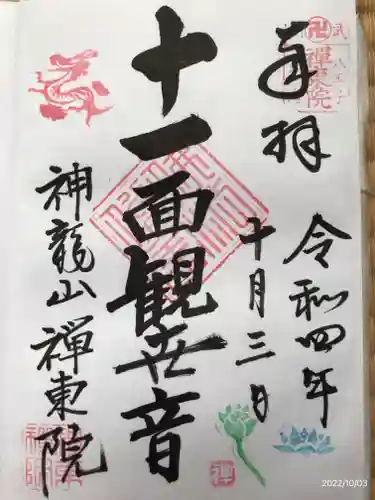 奉拝
令和四年
十月三日
十一面観世音
神龍山
禅東院
禅東院
禅
2022/10/03